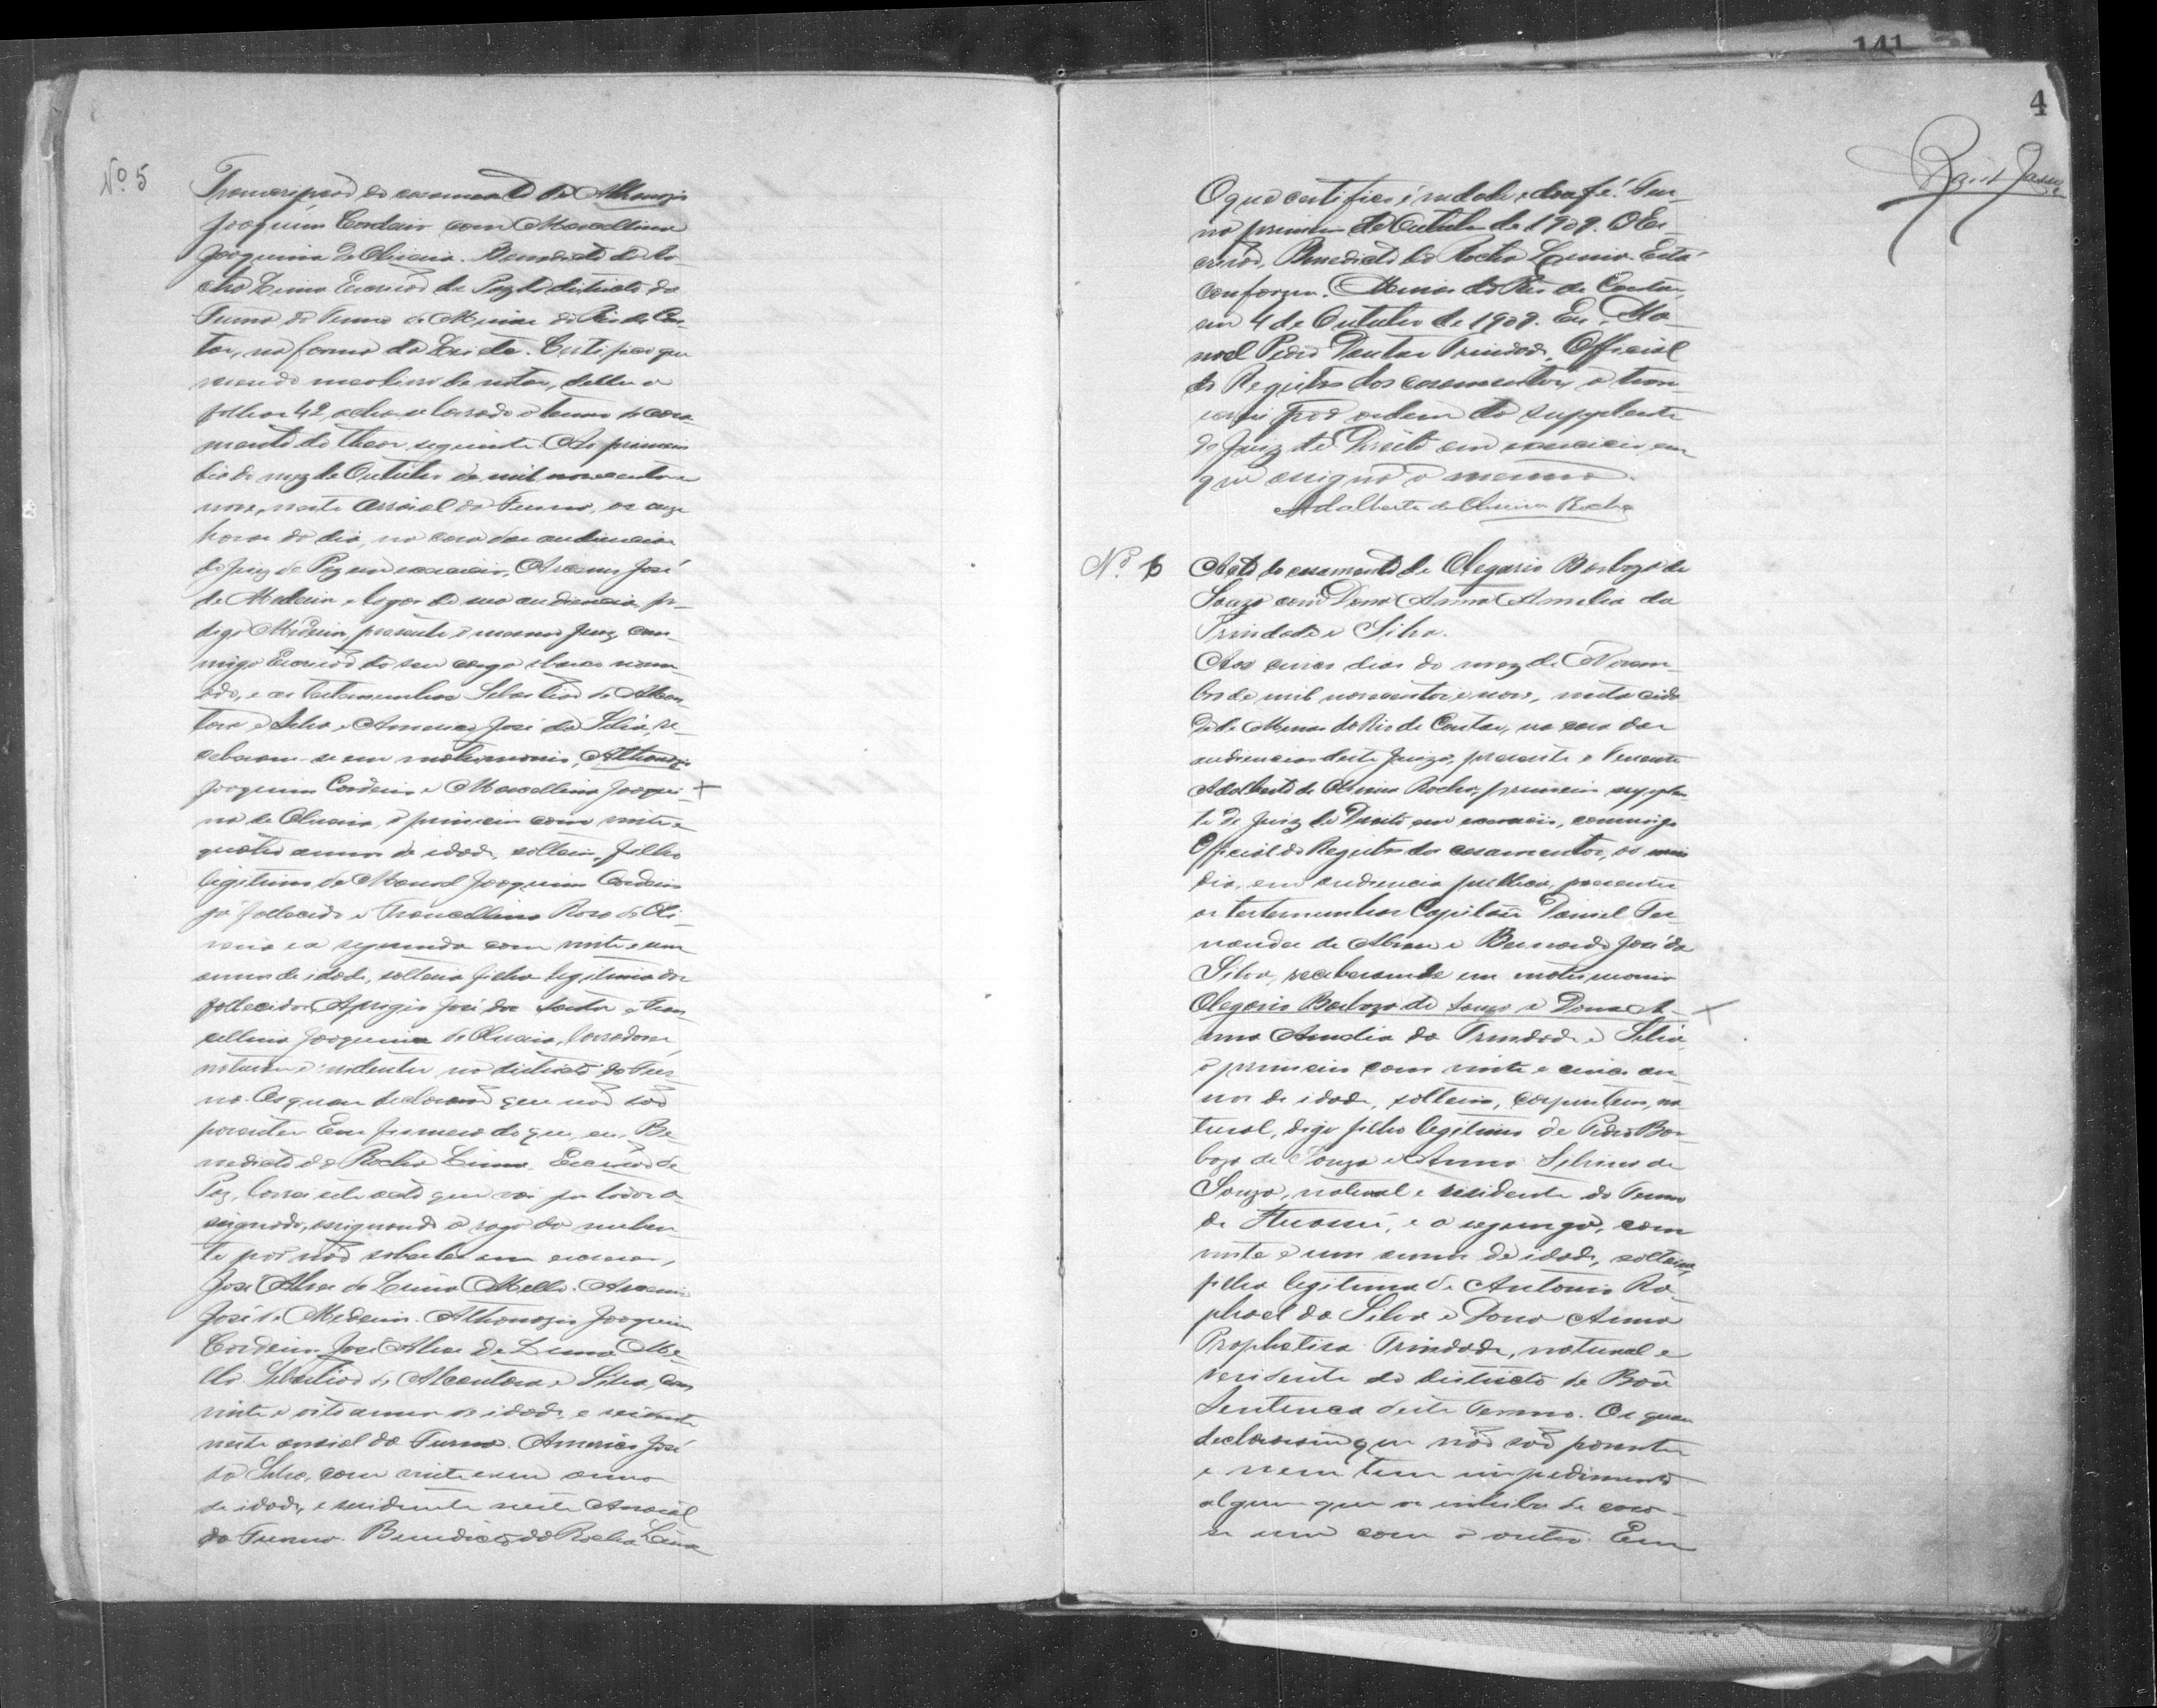 141
4
Nº 5
Transcripção do casamento de Athanazio
Joaquim Cordeiro com Marcellina
Joaquina de Oliveira. Benedicto da Ro-
cha Lima Escrivão de Paz do districto do
Furna, do Termo de Minas do Rio de Con-
tas, na forma da Lei etc. Certifico que
revendo meo livro de notas, delle a
folhas 42, acha-se lavrado o termo de casa-
mento do theor seguinte: Ao primeiro
dia do mez de Outubro de mil novecentos e
nove, neste arraial da Furna, as onze
horas do dia, na casa das audiencias
do Juiz de Paz em exercicio, José
de Medeiros e lugar de sua audiencia,
digo Medeiros, presente o mesmo Juiz, com-
migo Escrivão do seu cargo abaixo nome-
ado, e as testemunhas Sebastião de Alcan-
tara e Silva e Americo José da Silva, re-
ceberam-se em matrimonio, Athanazio
Joaquim Cordeiro e Marcellina Joaqui-
na de Oliveira, o primeiro com vinte e
quatro annos de idade, solteiro, filho
legitimo de Manoel Joaquim Cordeiro
já fallecido e Francellina Rosa de Oli-
veira e a segunda com vinte e um
annos de idade, solteira filha legitima dos
fallecidos Aprigio José dos Santos e
Joaquina de Oliveira, lavradores,
naturaes e residentes no districto da Fur-
na. Os quaes declararão que não são
parentes Em firmeza do que eu, Be-
nedicto da Rocha Lima, Escrivão de
Paz, lavrei este acto que vai por todos a-
ssignado, assignando a rogo da nuben-
te por não saber ler nem escrever,
José Alves de Lima Mello.
José de Medeiros. Athanazio Joaquim
Cordeiro José Alves de Lima Me-
llo. Sebastião de Alcantara e Silva, com
vinte e oito annos de idade, e residente
neste arraial da Furna. Americo José
da Silva, com vinte e um annos
de idade, e residente neste Arraial
da Furna. Benedicto da Rocha Lima
O que certifico é verdade e dou fé. Fur-
na primeiro de Outubro de 1909. O Es-
crivão, Benedicto da Rocha Lima. Está
conforme. Minas do Rio de Contas,
em 4 de Outubro de 1909. Eu, Ma-
noel Pedro Dantas Trindade, Official
do Registro dos casamentos, o trans-
crevi por ordem do supplente
do Juiz de Direito em exercicio em
que assigna o mesmo.
Adalberto de Oliveira Rocha
Nº 6
Acto do casamento de Olegario Barboza de
Souza com Dona Anna Amelia da
Trindade e Silva.
Aos cinco dias do mez de Novem-
bro de mil novecentos e nove, nesta cida-
de de Minas do Rio de Contas, na casa das
audiencias deste Juizo, presente o Tenente
Adalberto de Oliveira Rocha, primeiro supplen-
te do Juiz de Direito em exercicio, commigo
Official do Registro dos casamentos, ao meio
dia, em audiencia publica, presentes
as testemunhas Capitão Daniel Fer-
nandes de Abreu e Bernardo José da
Silva, receberam-se em matrimonio
Olegario Barboza de Souza e Dona A-
nna Amelia da Trindade e Silva,
o primeiro com vinte e cinco an-
nos de idade, solteiro, carpinteiro, na-
tural, digo filho legitimo de Pedro Bar-
boza de Souza e Anna Silvina de
Souza, natural e residente do Termo
de Ituassú, e a segunda, com
vinte e um annos de idade, solteira,
filha legitima de Antonio Ra-
phael da Silva e Dona Anna
Prophetisa Trindade, natural e
residente do districto de Bôa
Sentença deste Termo. Os quaes
declararam que não são parentes
e nem tem impedimento
algum que os inhiba de casar-
se um com o outro. Em